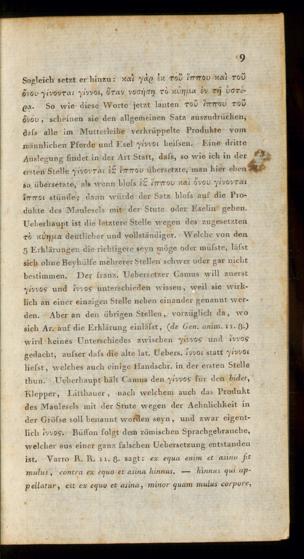 9
Sogleich setzt er hinzu: καὶ γὰρ ἐκ τοῦ ἵππου καὶ τοῦ
ὄνου γίνονται γίννοι, ὅταν νοσήσῃ τὸ κύημα ἐν τῇ ὑστέ-
ρᾳ. So wie diese Worte jetzt lauten τοῦ ἵππου τοῦ
ὄνου, scheinen sie den allgemeinen Satz auszudrücken,
daſs alle im Mutterleibe verkrüppelte Produkte vom
männlichen Pferde und Esel γίννοι heiſsen. Eine dritte
Auslegung findet in der Art Statt, daſs, so wie ich in der
ersten Stelle γίνονται ἐξ ἵππου übersetzte, man hier eben
so übersetzte, als wenn bloſs ἐξ ἵππου καὶ ὄνου γίνονται
ἵπποι stünde; dann würde der Satz bloſs auf die Pro-
dukte des Maulesels mit der Stute oder Eselin gehen.
Ueberhaupt ist die letztere Stelle wegen des zugesetzten
τὸ κύημα deutlicher und vollständiger. Welche von den
3 Erklärungen die richtigere seyn möge oder müſste, läſst
sich ohne Beyhülfe mehrerer Stellen schwer oder gar nicht
bestimmen. Der franz. Uebersetzer Camus will zuerst
γίννος und ἵννος unterschieden wissen, weil sie wirk-
lich an einer einzigen Stelle neben einander genannt wer-
den. Aber an den übrigen Stellen, vorzüglich da, wo
sich Ar. auf die Erklärung einläſst, (de Gen. anim. 11. 8.)
wird keines Unterschiedes zwischen γίννος und ἵννος
gedacht, auſser daſs die alte lat. Uebers. ἵννοι statt γίννοι
lieſst, welches auch einige Handschr. in der ersten Stelle
thun. Ueberhaupt hält Camus den γίννος für den bidet,
Klepper, Litthauer, nach welchem auch das Produkt
des Maulesels mit der Stute wegen der Aehnlichkeit in
der Gröſse soll benannt worden seyn, und zwar eigent-
lich ἵννος. Büffon folgt dem römischen Sprachgebrauche,
welcher aus einer ganz falschen Uebersetzung entstanden
ist. Varro R. R. 11. 8. sagt: ex equa enim et asino fit
mulus, contra ex equo et asina hinnus. — hinnus qui ap-
pellatur, est ex equo et asina, minor quam mulus corpore,